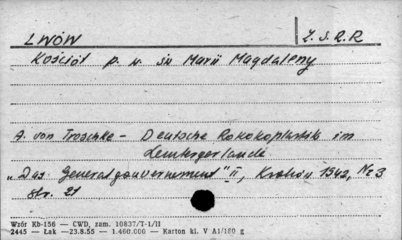 LWÓW
Z.S.R.R
Kościół p. w. św Marii Magdaleny
A. von Troschke - Deutsche Rokokoplastik im
Lembergerlande
"Das Generalgouvernement" II, Kraków 1942, No 3
str. 21
Wzór Kb-156 — CWD, zam. 10837/T-1/II
2445 — Łak —23.8.55 — 1.460.000 — Karton kl. V A1/180 g